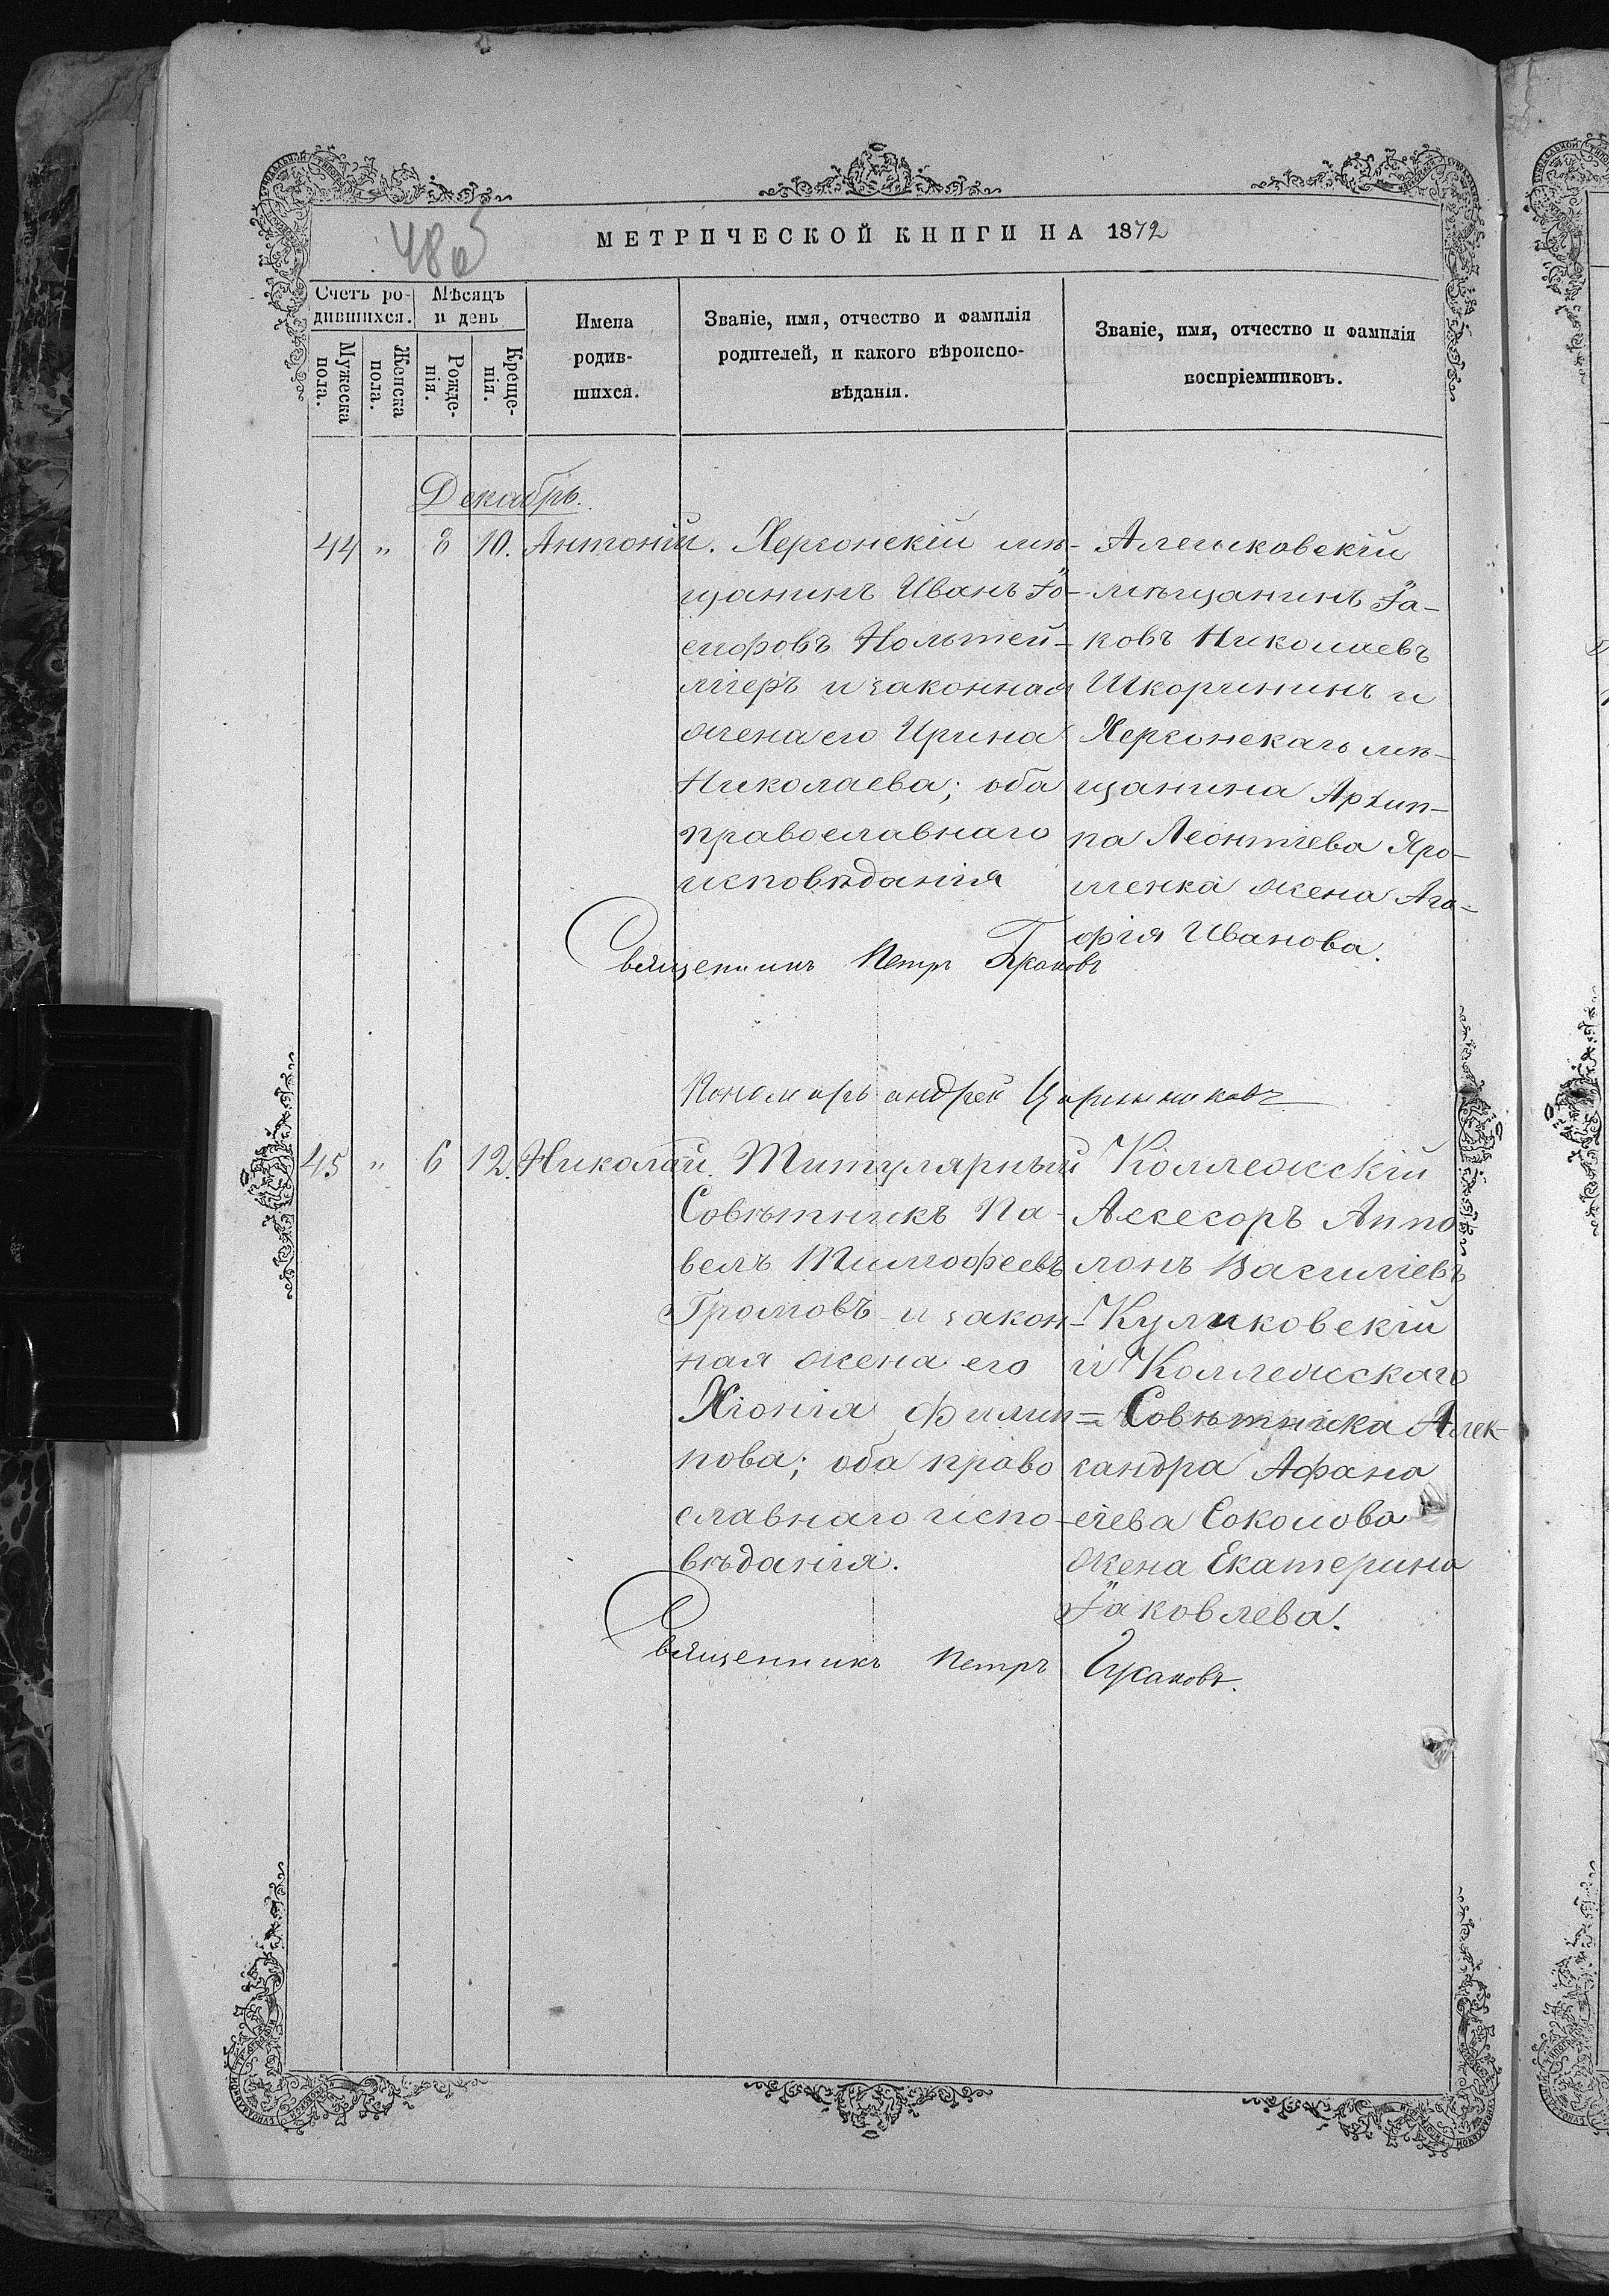 48об
МЕТРИЧЕСКОЙ КНИГИ НА 1872
Счетъ ро-
дившихся.
Мѣсяцъ
и день
Мужеска
пола.
Женска
пола.
Рожде-
нія.
Креще-
нія.
Имена
родив-
шихся.
Званіе, имя, отчество и фамилія
родителей, и какого вѣроиспо-
вѣданія.
Званіе, имя, отчество и фамилія
воспріемниковъ.
Декабрь.
44 " 8 10. Антоній.
Херсонскій мѣ-
щанинъ Иванъ Іо-
сифовъ Нольтей-
міеръ и законная
жена его Ирина
Николаева; оба
православнаго
исповѣданія
Алешковскій
мѣщанинъ Іа-
ковъ Николаевъ
Шкоринъ и
Херсонскаго мѣ-
щанина Архип-
па Леонтіева Яро-
шенка жена Ага-
фія Иванова.
Священникъ Петръ
Пономарь Андрей
45 " 6 12. Николай.
Титулярный
Совѣтникъ Па-
велъ Тимофеевъ
Громовъ и закон-
ная жена его
Хіонія Филип=
пова; оба право
славнаго испо-
вѣданія.
Коллежскій
Ассесоръ Аппо
лонъ Василіевъ
Куликовскій
и Коллежскаго
Совѣтника Алек-
сандра Афана
сіева Соколова
жена Екатерина
Іаковлева.
Священникъ Петръ